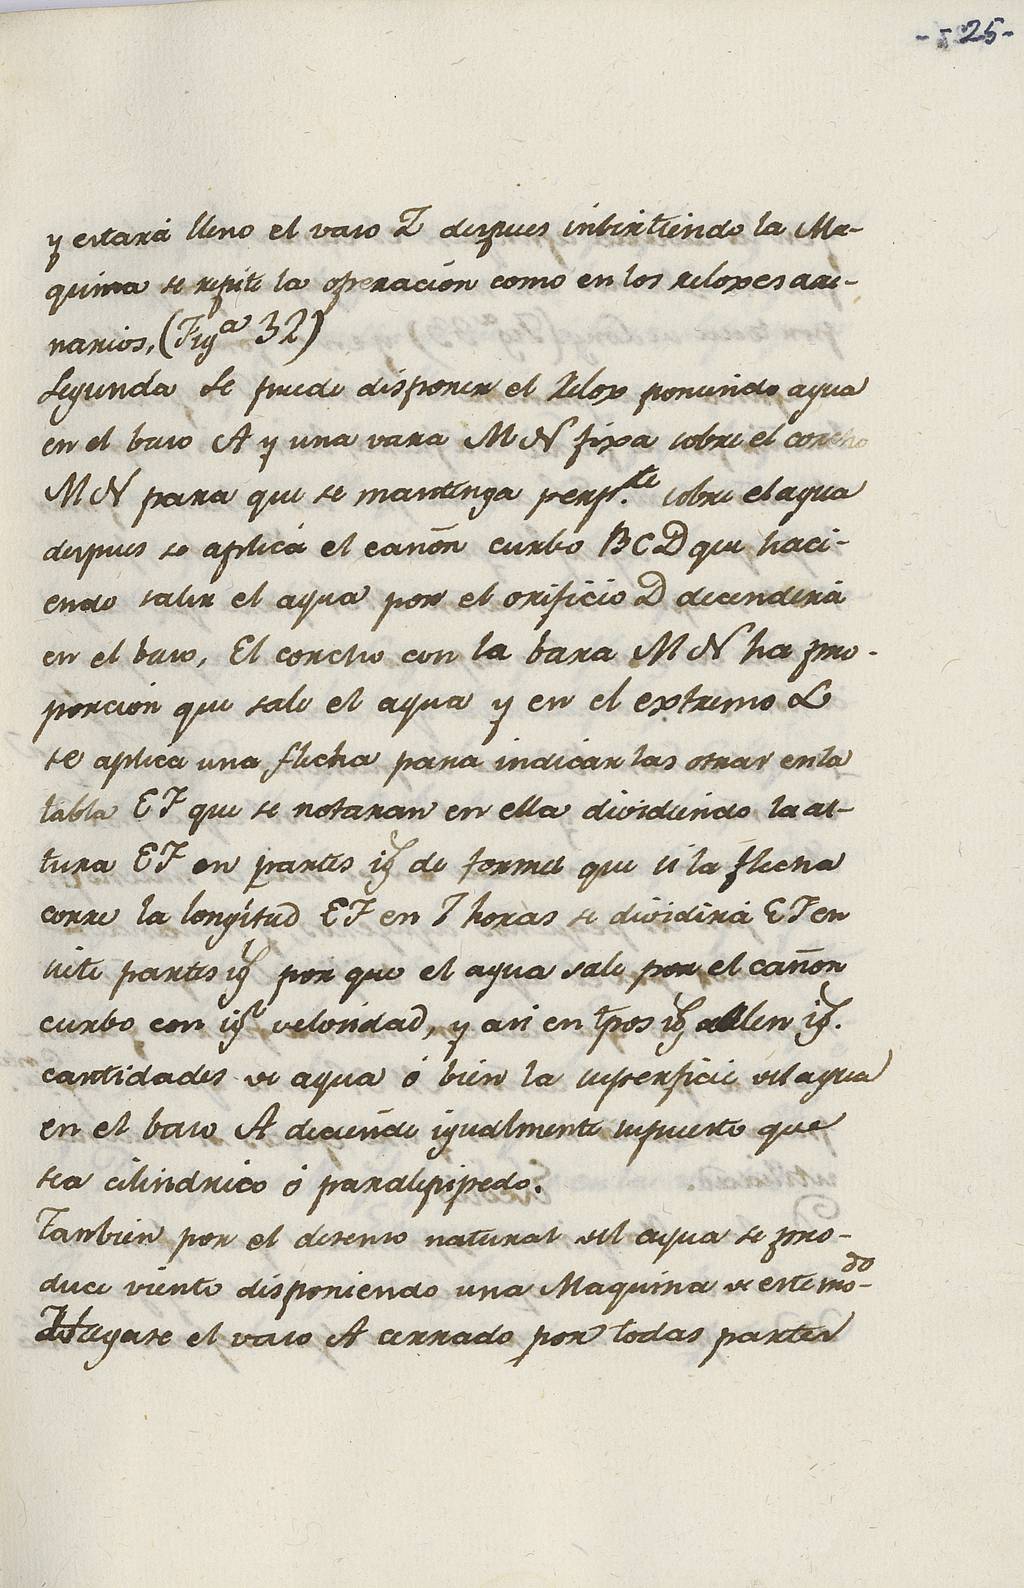 - - 25-
y estará lleno el vaso Z despues inbirtiendo la Ma-
quina se repite la operación como en los reloxes are-
narios, (Figª 32)
Segunda Se puede disponer el Relox poniendo agua
en el baso A y una vara M N fixa sobre el corcho
M N para que se mantenga perp.te sobre el agua
despues se aplica el cañon curbo BCD que haci-
endo salir el agua por el orificio D decenderá
en el baso, El corcho con la bara M N ha pro-
porción que sale el agua y en el extremo L
se aplica una flecha para indicar las oras en la
tabla EF que se notaran en ella dividiendo la al-
tura EF en partes ig.s de forma que si la flecha
corre la longitud EF en 7 horas se dividirá EF en
siete partes ig.s por que el agua sale por el cañon
curbo con ig.l velosidad, y asi en tpos ig.s salen ig.s
cantidades de agua ó bien la superficie del agua
en el baso A deciende igualmente supuesto que
sea cilindrico ó paralepipedo.
Tanbien por el desenso natural del agua se pro-
duce viento disponiendo una Maquina de este mo-do
Hagase el vaso A cerrado por todas partes